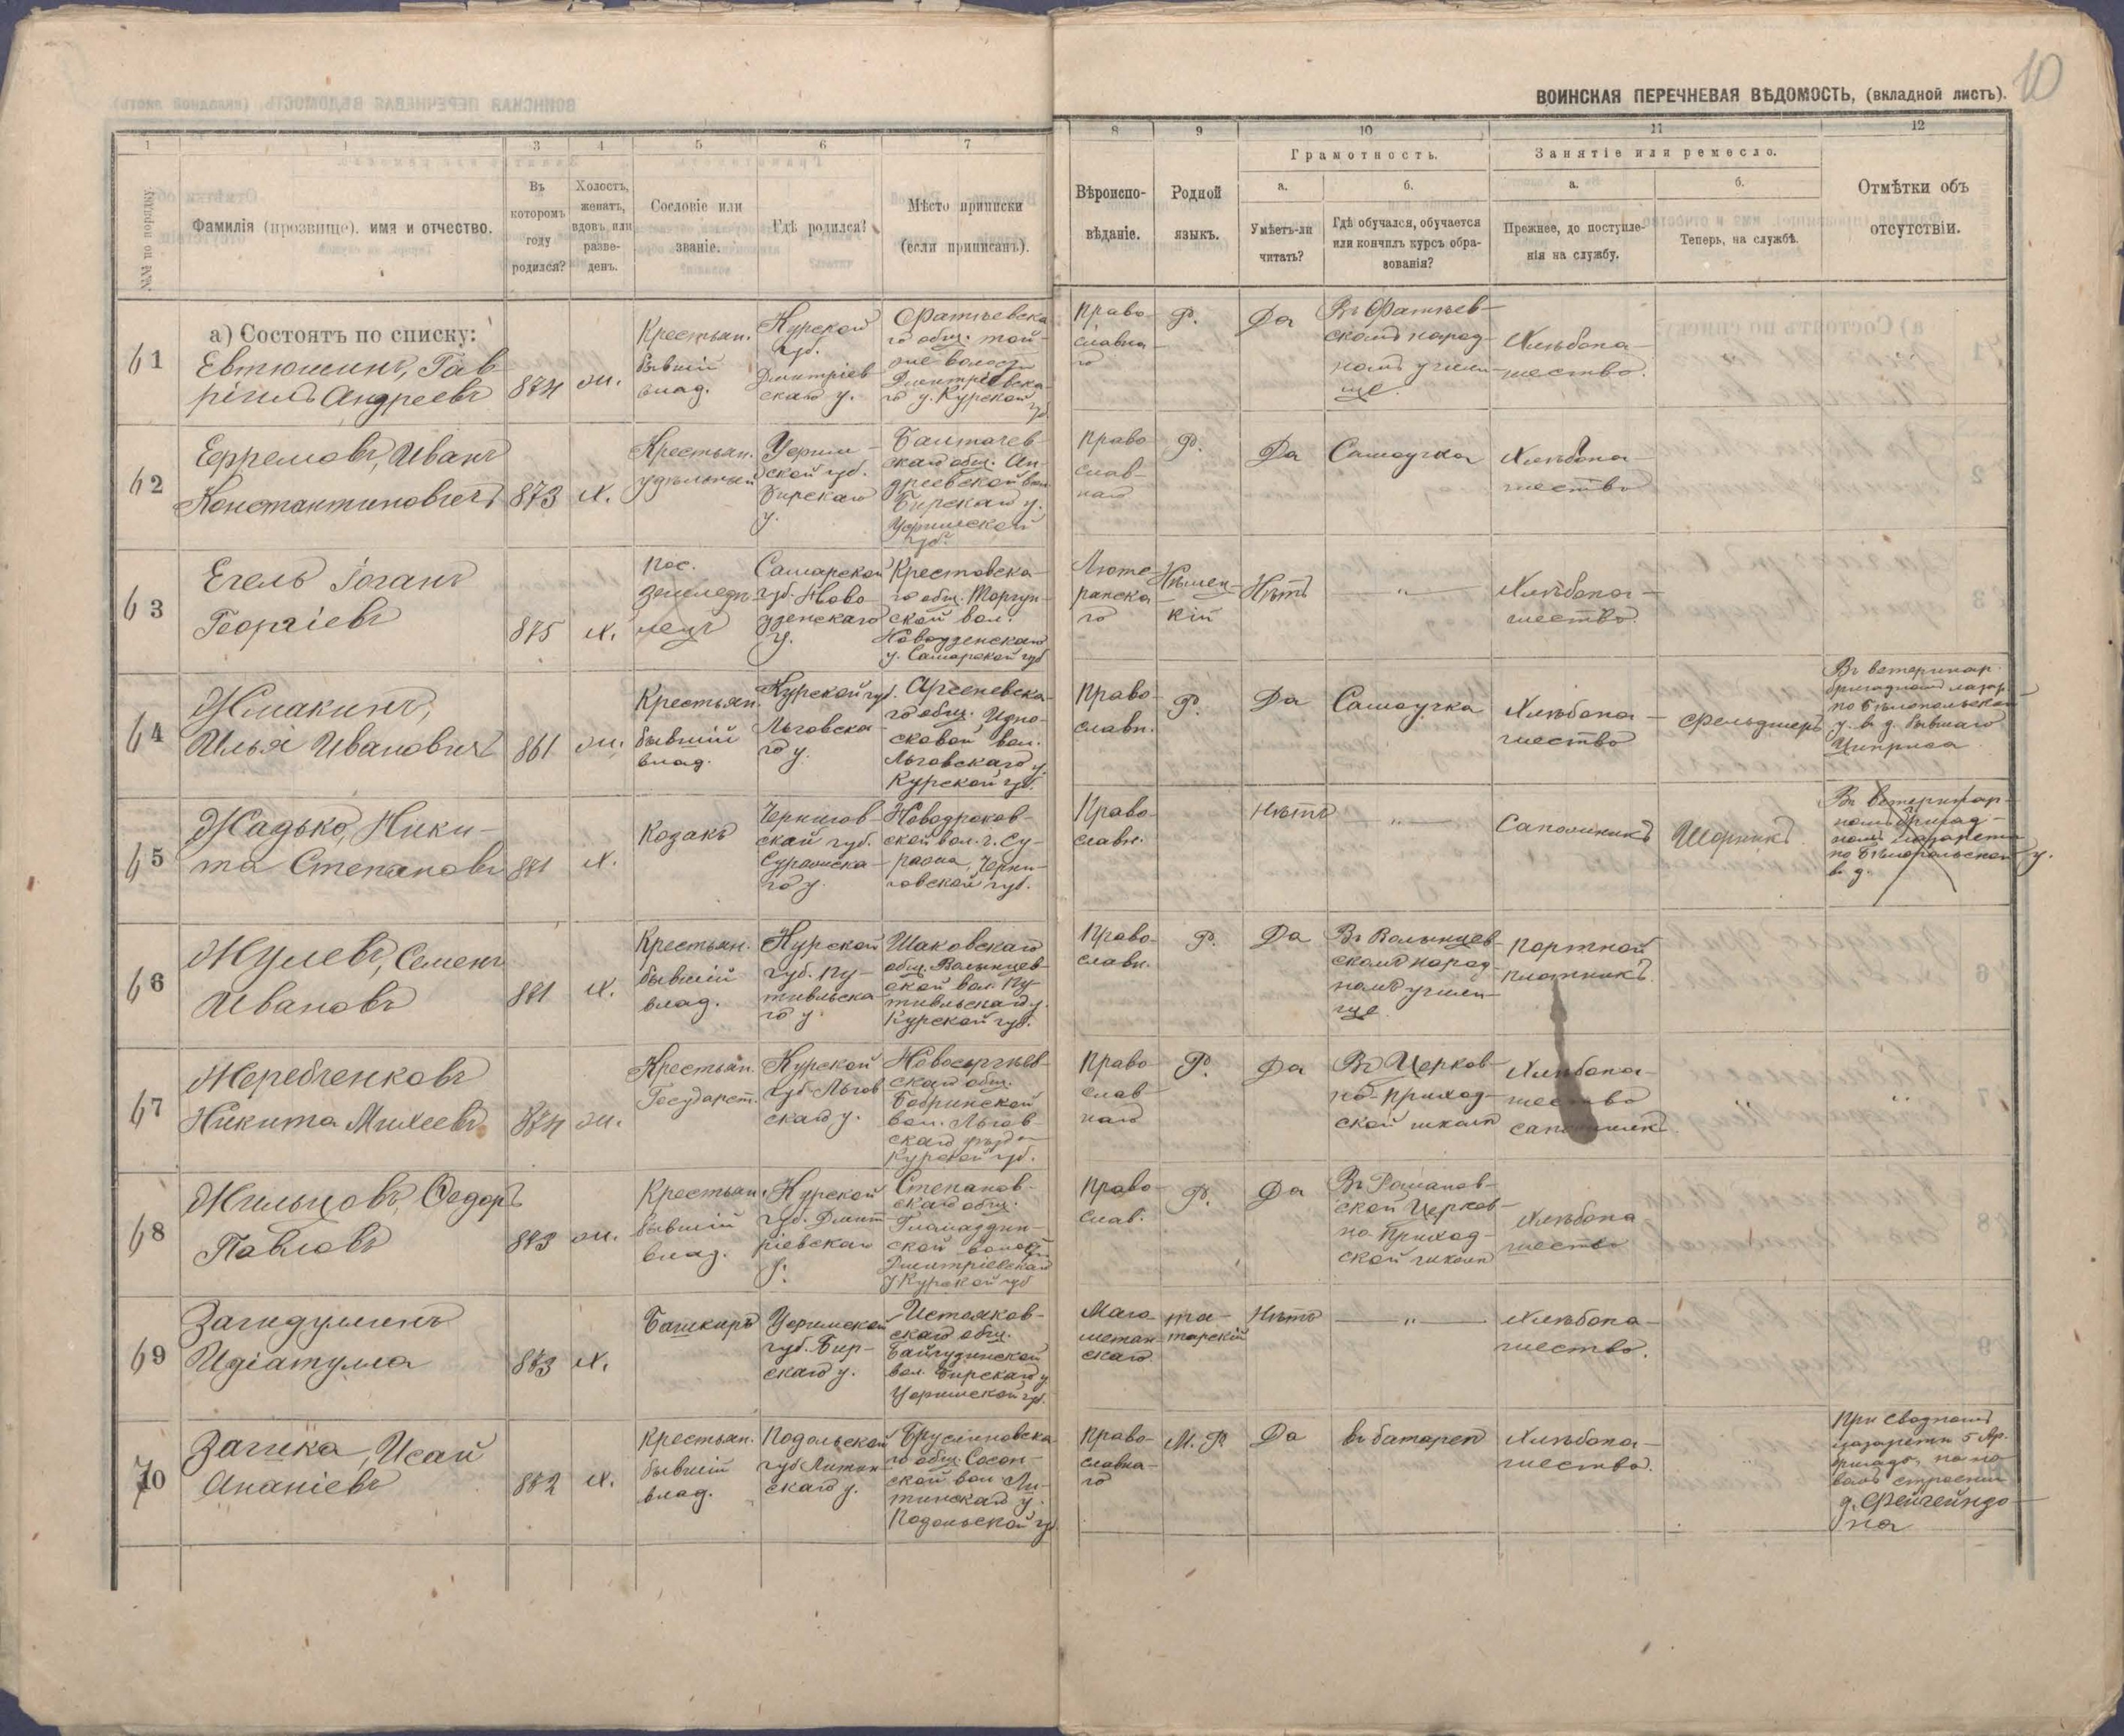 10
ВОИНСКАЯ ПЕРЕЧНЕВАЯ ВѢДОМОСТЬ, (вкладной листъ).
1 3 4 5 6 7 8 9 10 11 12
№№ по порядку.
Фамилія (прозвище), имя и отчество.
Въ
которомъ
году
родился?
Холостъ,
женатъ,
вдовъ или
разве-
денъ.
Сословіе или
званіе.
Гдѣ родился?
Мѣсто приписки
(если приписанъ).
Вѣроиспо-
вѣданіе.
Родной
языкъ.
Грамотность.
а.
Умѣетъ-ли
читать?
б.
Гдѣ обучался, обучается
или кончилъ курсъ обра-
зованія?
Занятіе или ремесло.
а.
Прежнее, до поступле-
нія на службу.
б.
Теперь, на службѣ.
Отмѣтки объ
отсутствіи.
а) Состоятъ по списку:
61
Евтюшинъ, Гав-
ріилъ Андреевъ
874
ж.
Крестьян.
бывшій
влад.
Курской
губ.
Дмитріев
скаго у.
Фатѣевска
го общ. той-
же волости
Дмитріевска-
го у. Курской
губ.
Право-
славна-
го
Р.
Да
Въ Фатѣев-
скомъ народ-
номъ учили-
ще.
Хлѣбопа-
шество.
62
Ефремовъ, Иванъ
Константиновичъ
873
х.
Крестьян.
удѣльный
Уфим-
ской губ.
Бирскаго
у.
Баитачев-
скаго общ. Ан-
дреевской вол.
Бирскаго у.
Уфимской
губ.
Право
слав-
наго
Р.
Да
Самоучка
Хлѣбопа-
шество
63
Егель Іоганъ
Георгіевъ
875
х.
Пос.
Земледѣ-
лецъ
Самарской
губ. Ново-
узенскаго
у.
Крестовска-
го общ. Торгун-
ской вол.
Новоузенскаго
у. Самарской губ
Люте-
ранска
го
Нѣмец-
кій
Нѣтъ
— „ —
Хлѣбопа-
шество
64
Жмакинъ,
Илья Ивановичъ
861
ж.
Крестьян.
бывшій
влад.
Курской губ.
Льговска-
го у.
Арсеневска-
го общ.
вол.
Льговскаго у.
Курской губ.
Право-
славн.
Р.
Да
Самоучка
Хлѣбопа-
шество
фельдшеръ
Въ ветеринар.
бригадномъ лазар.
по Бѣлопольской
у. в д. бывшаго
Циприса
65
Жадько, Ники-
та Степановъ
881
х.
Козакъ
Чернигов-
ской губ.
Суражска-
го у.
Новодроков-
ской вол. г. Су-
ража, Черни-
говской губ.
Право-
славн.
Нѣтъ
— „ —
Сапожникъ
Шорникъ
Въ ветеринар-
номъ бригад-
номъ лазаретѣ
по Бѣлопольской у.
в д.
66
Жулевъ, Семенъ
Ивановъ
881
х.
Крестьян.
бывшій
влад.
Курской
губ. Пу-
тивльска-
го у
Шаковскаго
общ. Волынцев-
ской вол. Пу-
тивльскаго у.
Курской губ.
Право-
славн.
Р.
Да
Въ Волынцев-
скомъ народ-
номъ учили-
ще.
Портной
плотникъ.
67
Жеребченковъ
Никита Михеевъ
874
ж.
Крестьян.
Государст.
Курской
губ. Льгов
скаго у.
Новосергѣев-
скаго общ.
Бобринской
вол. Льгов-
скаго уѣзда
Курской губ.
Право
слав-
наго
Р.
Да
Въ Церков-
но-приход-
ской школѣ
Хлѣбопа-
шество
сапожникъ.
68
Жильцовъ, Ѳедоръ
Павловъ
883
ж.
Крестьян.
бывшій
влад.
Курской
губ. Дмит-
ріевскаго
у.
Степанов-
скаго общ.
ской волости
Дмитріевскаго
у Курской губ
Право
слав.
Р.
Да
Въ Романов-
ской Церков-
но приход-
ской школѣ
Хлѣбопа
шество
69
Загидулинъ
Идіатулла
883
х.
Башкиръ
Уфимской
губ. Бир-
скаго у.
Истяков-
скаго общ.
Байгузинской
вол. Бирскаго у
Уфимской губ.
Маго-
метан-
скаго
та-
тарскій
Нѣтъ
— „ —
Хлѣбопа-
шество.
70
Заика, Исай
Ананіевъ
882
х.
Крестьян.
бывшій
влад.
Подольской
губ Литин
скаго у.
Брусленовска
го общ. Сосон-
ской вол. Ли-
тинскаго у.
Подольской губ
Право-
славна-
го
М. Р
Да
въ батареѣ
Хлѣбопа-
шество.
При сводномъ
лазаретѣ 5 Ар.
бригады,